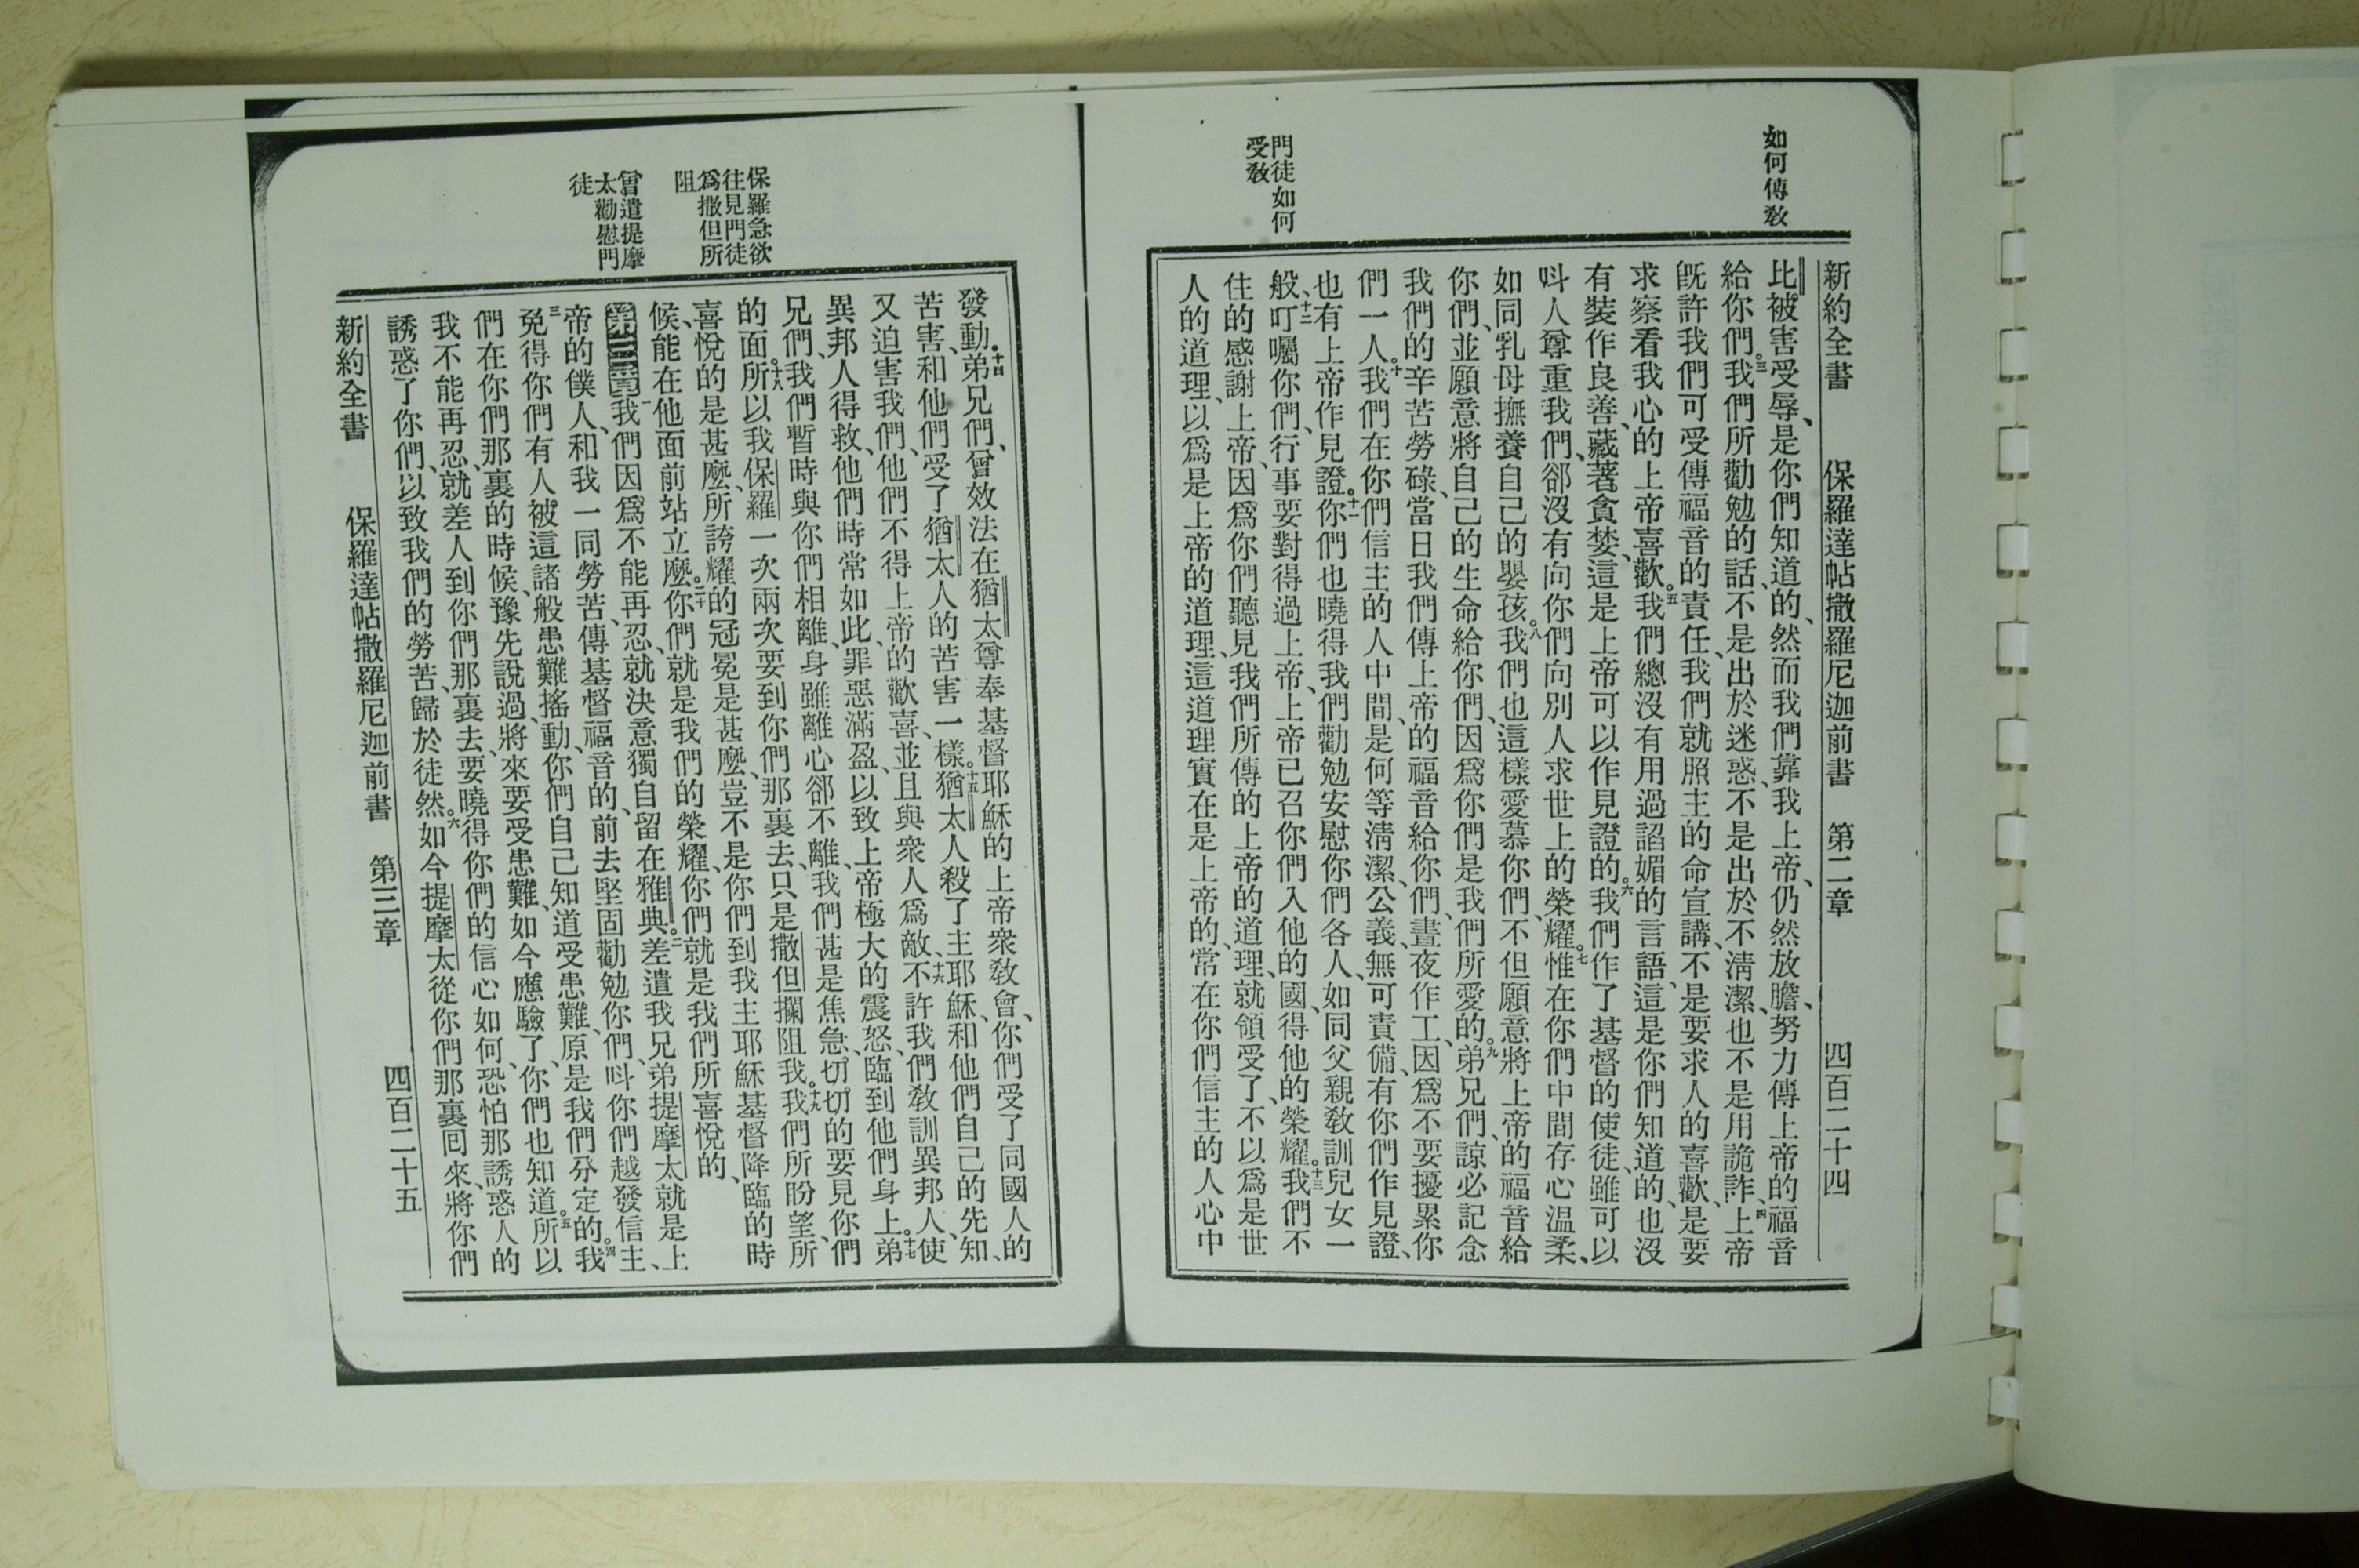 如何傳教
門徒如何
受教
新約全書 保羅達帖撒羅尼迦前書 第二章 四百二十四
比被害受辱、是你們知道的、然而我們靠我上帝、仍然放膽、努力傳上帝的福音
給你們。三我們所勸勉的話、不是出於迷惑、不是出於不清潔、也不是用詭詐、四上帝
旣許我們可受傳福音的責任、我們就照主的命宣講、不是要求人的喜歡、是要
求察看我心的上帝喜歡。五我們總沒有用過諂媚的言語、這是你們知道的、也沒
有裝作良善、藏著貪婪、這是上帝可以作見證的。六我們作了基督的使徒、雖可以
呌人尊重我們、郤沒有向你們向別人求世上的榮耀。七惟在你們中間存心温柔、
如同乳母撫養自己的嬰孩。八我們也這樣愛慕你們、不但願意將上帝的福音給
你們、並願意將自己的生命給你們、因爲你們是我們所愛的。九弟兄們、諒必記念
我們的辛苦勞碌、當日我們傳上帝的福音給你們、晝夜作工、因爲不要擾累你
們一人。十我們在你們信主的人中間、是何等淸潔、公義、無可責備、有你們作見證、
也有上帝作見證。十一你們也曉得我們勸勉安慰你們各人、如同父親敎訓兒女一
般、十二叮囑你們、行事要對得過上帝、上帝已召你們入他的國、得他的榮耀。十三我們不
住的感謝上帝、因爲你們聽見我們所傳的上帝的道理、就領受了、不以爲是世
人的道理、以爲是上帝的道理、這道理實在是上帝的、常在你們信主的人心中
保羅急欲
往見門徒
爲撒但所
阻
曾遣提摩
太勸慰門
徒
發動。十四弟兄們、曾效法在猶太尊奉基督耶穌的上帝衆敎會、你們受了同國人的
苦害、和他們受了猶太人的苦害一樣。十五猶太人殺了主耶穌、和他們自己的先知、
又迫害我們、他們不得上帝的歡喜、並且與衆人爲敵、十六不許我們敎訓異邦人、使
異邦人得救、他們時常如此、罪惡滿盈、以致上帝極大的震怒、臨到他們身上。十七弟
兄們、我們暫時與你們相離、身雖離心郤不離、我們甚是焦急、切切的要見你們
的面。十八所以我保羅一次兩次要到你們那裏去、只是撒但攔阻我。十九我們所盼望、所
喜悅的是甚麼、所誇耀的冠冕是甚麼、豈不是你們到我主耶穌基督降臨的時
候、能在他面前站立麼。二十你們就是我們的榮耀、你們就是我們所喜悅的、
第三章一我們因爲不能再忍、就決意獨自留在雅典。二差遣我兄弟提摩太就是上
帝的僕人、和我一同勞苦、傳基督福音的、前去堅固勸勉你們、呌你們越發信主、
三免得你們有人被這諸般患難搖動、你們自己知道受患難、原是我們分定的。四我
們在你們那裏的時候、豫先說過、將來要受患難、如今應驗了、你們也知道。五所以
我不能再忍、就差人到你們那裏去、要曉得你們的信心如何、恐怕那誘惑人的
誘惑了你們、以致我們的勞苦、歸於徒然。六如今提摩太從你們那裏囘來、將你們
新約全書 保羅達帖撒羅尼迦前書 第三章 四百二十五